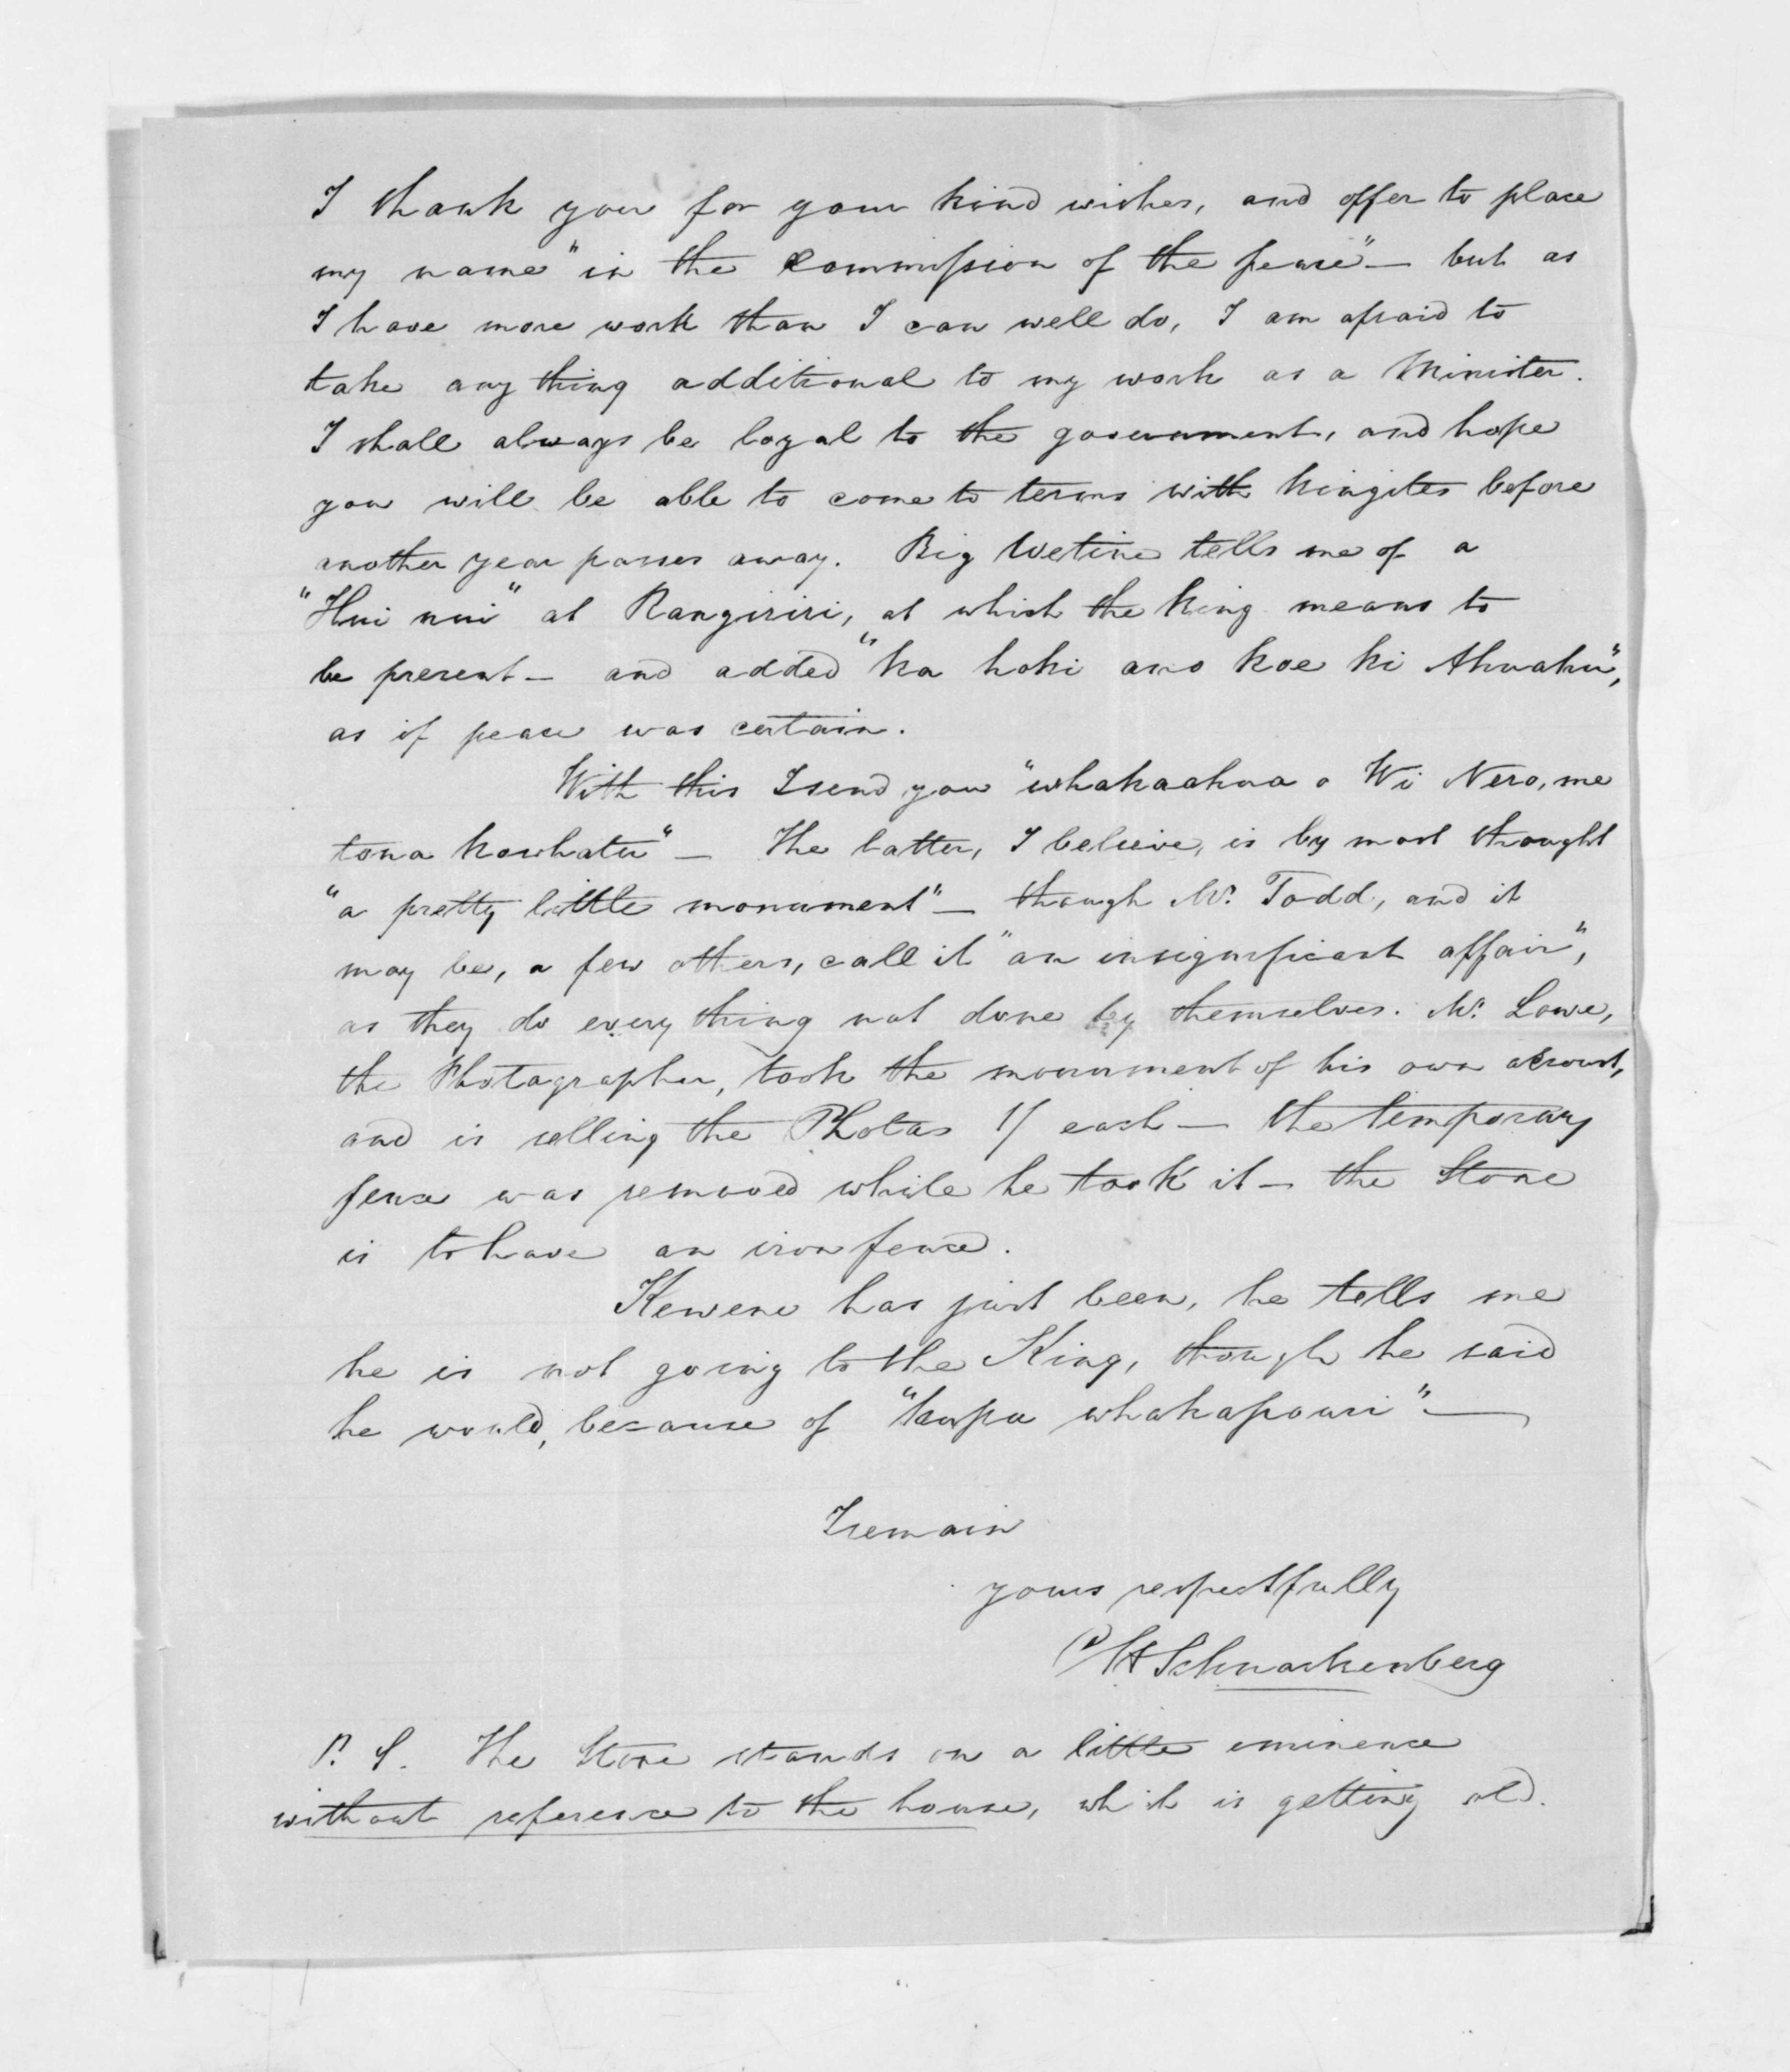 I thank you for your kind wishes, and offer to place
my name "in the Commission of the peace" — but as
I have more work than I can well do, I am afraid to
take any thing additional to my work as a Minister.
I shall always be loyal to the government, and hope
you will be able to come to terms with kingites before
another year passes away. Big Wetine tells me of a
"Hui nui" at Rangiriri, at which the King means to
be present — and added "ka hoki ano koe ki Ahuahu",
as if peace was certain.
With this I send you "whakaahua o Wi Nero, me
tona kowhatu" — The latter, I believe, is by most thought
"a pretty little monument" — though Mr. Todd, and it
may be, a few others, call it "an insignificant affair",
as they do every thing not done by themselves. Mr. Lowe,
the Photographer, took the monument of his own account,
and is selling the Photas 1/ each — the temporary
fence was removed while he took it — the Stone
is to have an iron fence.
Kewene has just been, he tells me
he is not going to the King, though he said
he would, because of "kupu whakapouri". —
I remain
yours respectfully
CH Schnackenberg
P. S. The Stone stands on a little eminence
without reference to the house, which is getting old.